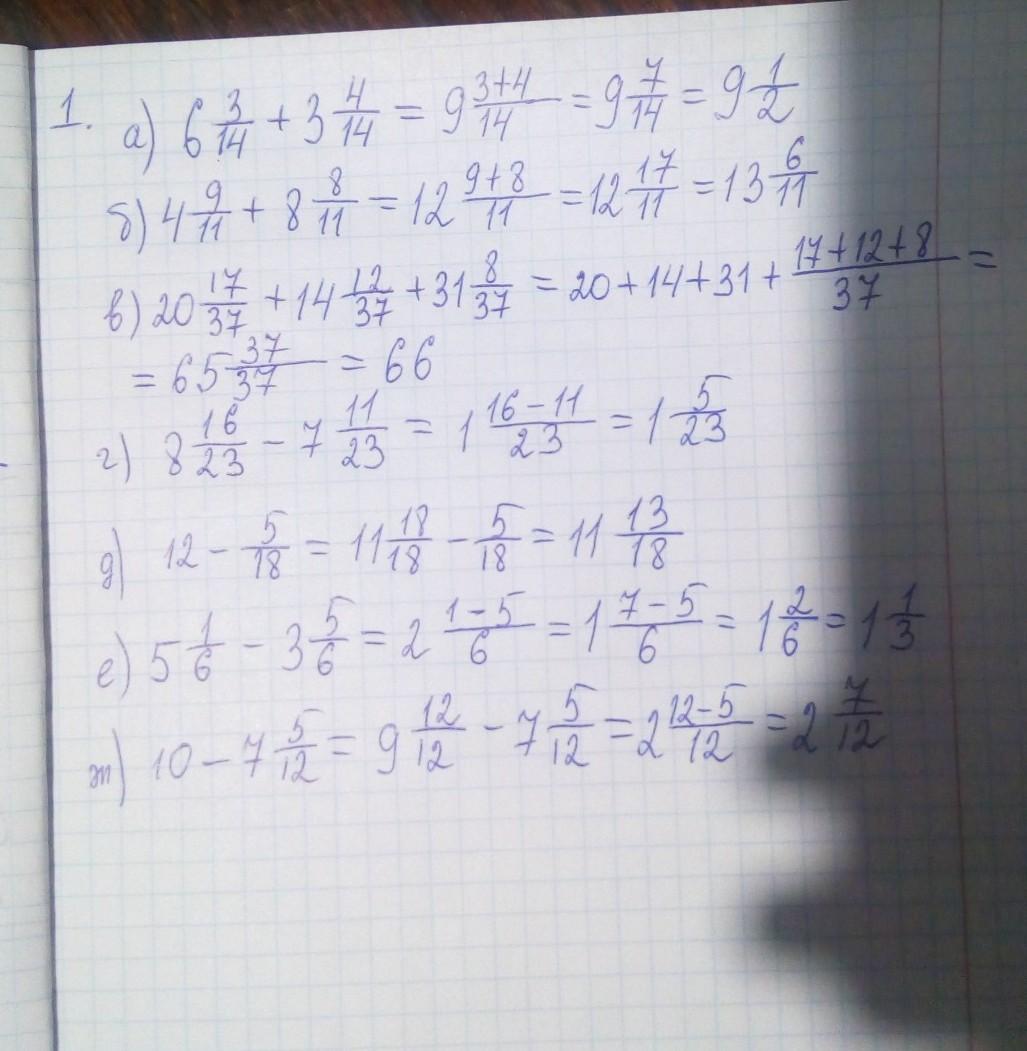 1. а) 6 3/14 + 3 4/14 = 9 (3+4)/14 = 9 7/14 = 9 1/2
б) 4 9/11 + 8 8/11 = 12 (9+8)/11 = 12 17/11 = 13 6/11
в) 20 17/37 + 14 12/37 + 31 8/37 = 20 + 14 + 31 + (17+12+8)/37 =
= 65 37/37 = 66
г) 8 16/23 - 7 11/23 = 1 (16-11)/23 = 1 5/23
д) 12 - 5/18 = 11 18/18 - 5/18 = 11 13/18
е) 5 1/6 - 3 5/6 = 2 (1-5)/6 = 1 (7-5)/6 = 1 2/6 = 1 1/3
ж) 10 - 7 5/12 = 9 12/12 - 7 5/12 = 2 (12-5)/12 = 2 7/12